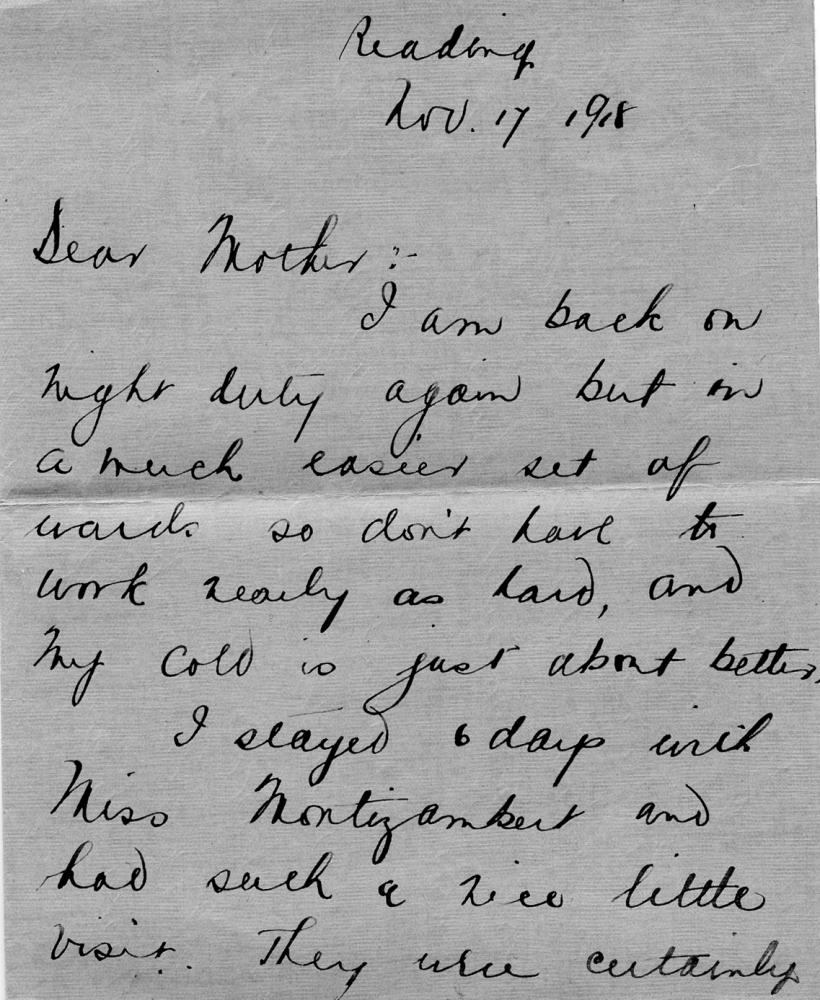 Reading
Nov. 17 1918
Dear Mother :-
I am back on
night duty again but in
a much easier set of
wards so don't have to
work nearly as hard, and
my cold is just about better.
I stayed 6 days with
Miss Montizambert and
had such a nice little
visit. They were certainly